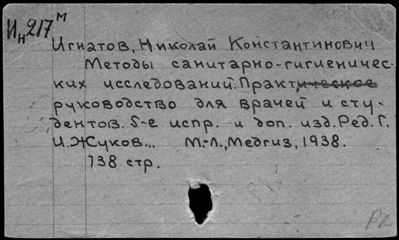 Ин217м
Игнатов, Николай Константинович
Методы санитарно-гигиеничес-
ких исследований. Практическое
руководство для врачей и сту-
дентов. 5-е испр. и доп. изд. Ред. Г.
И. Жуков... М.-Л., Медгиз, 1938.
738 стр.